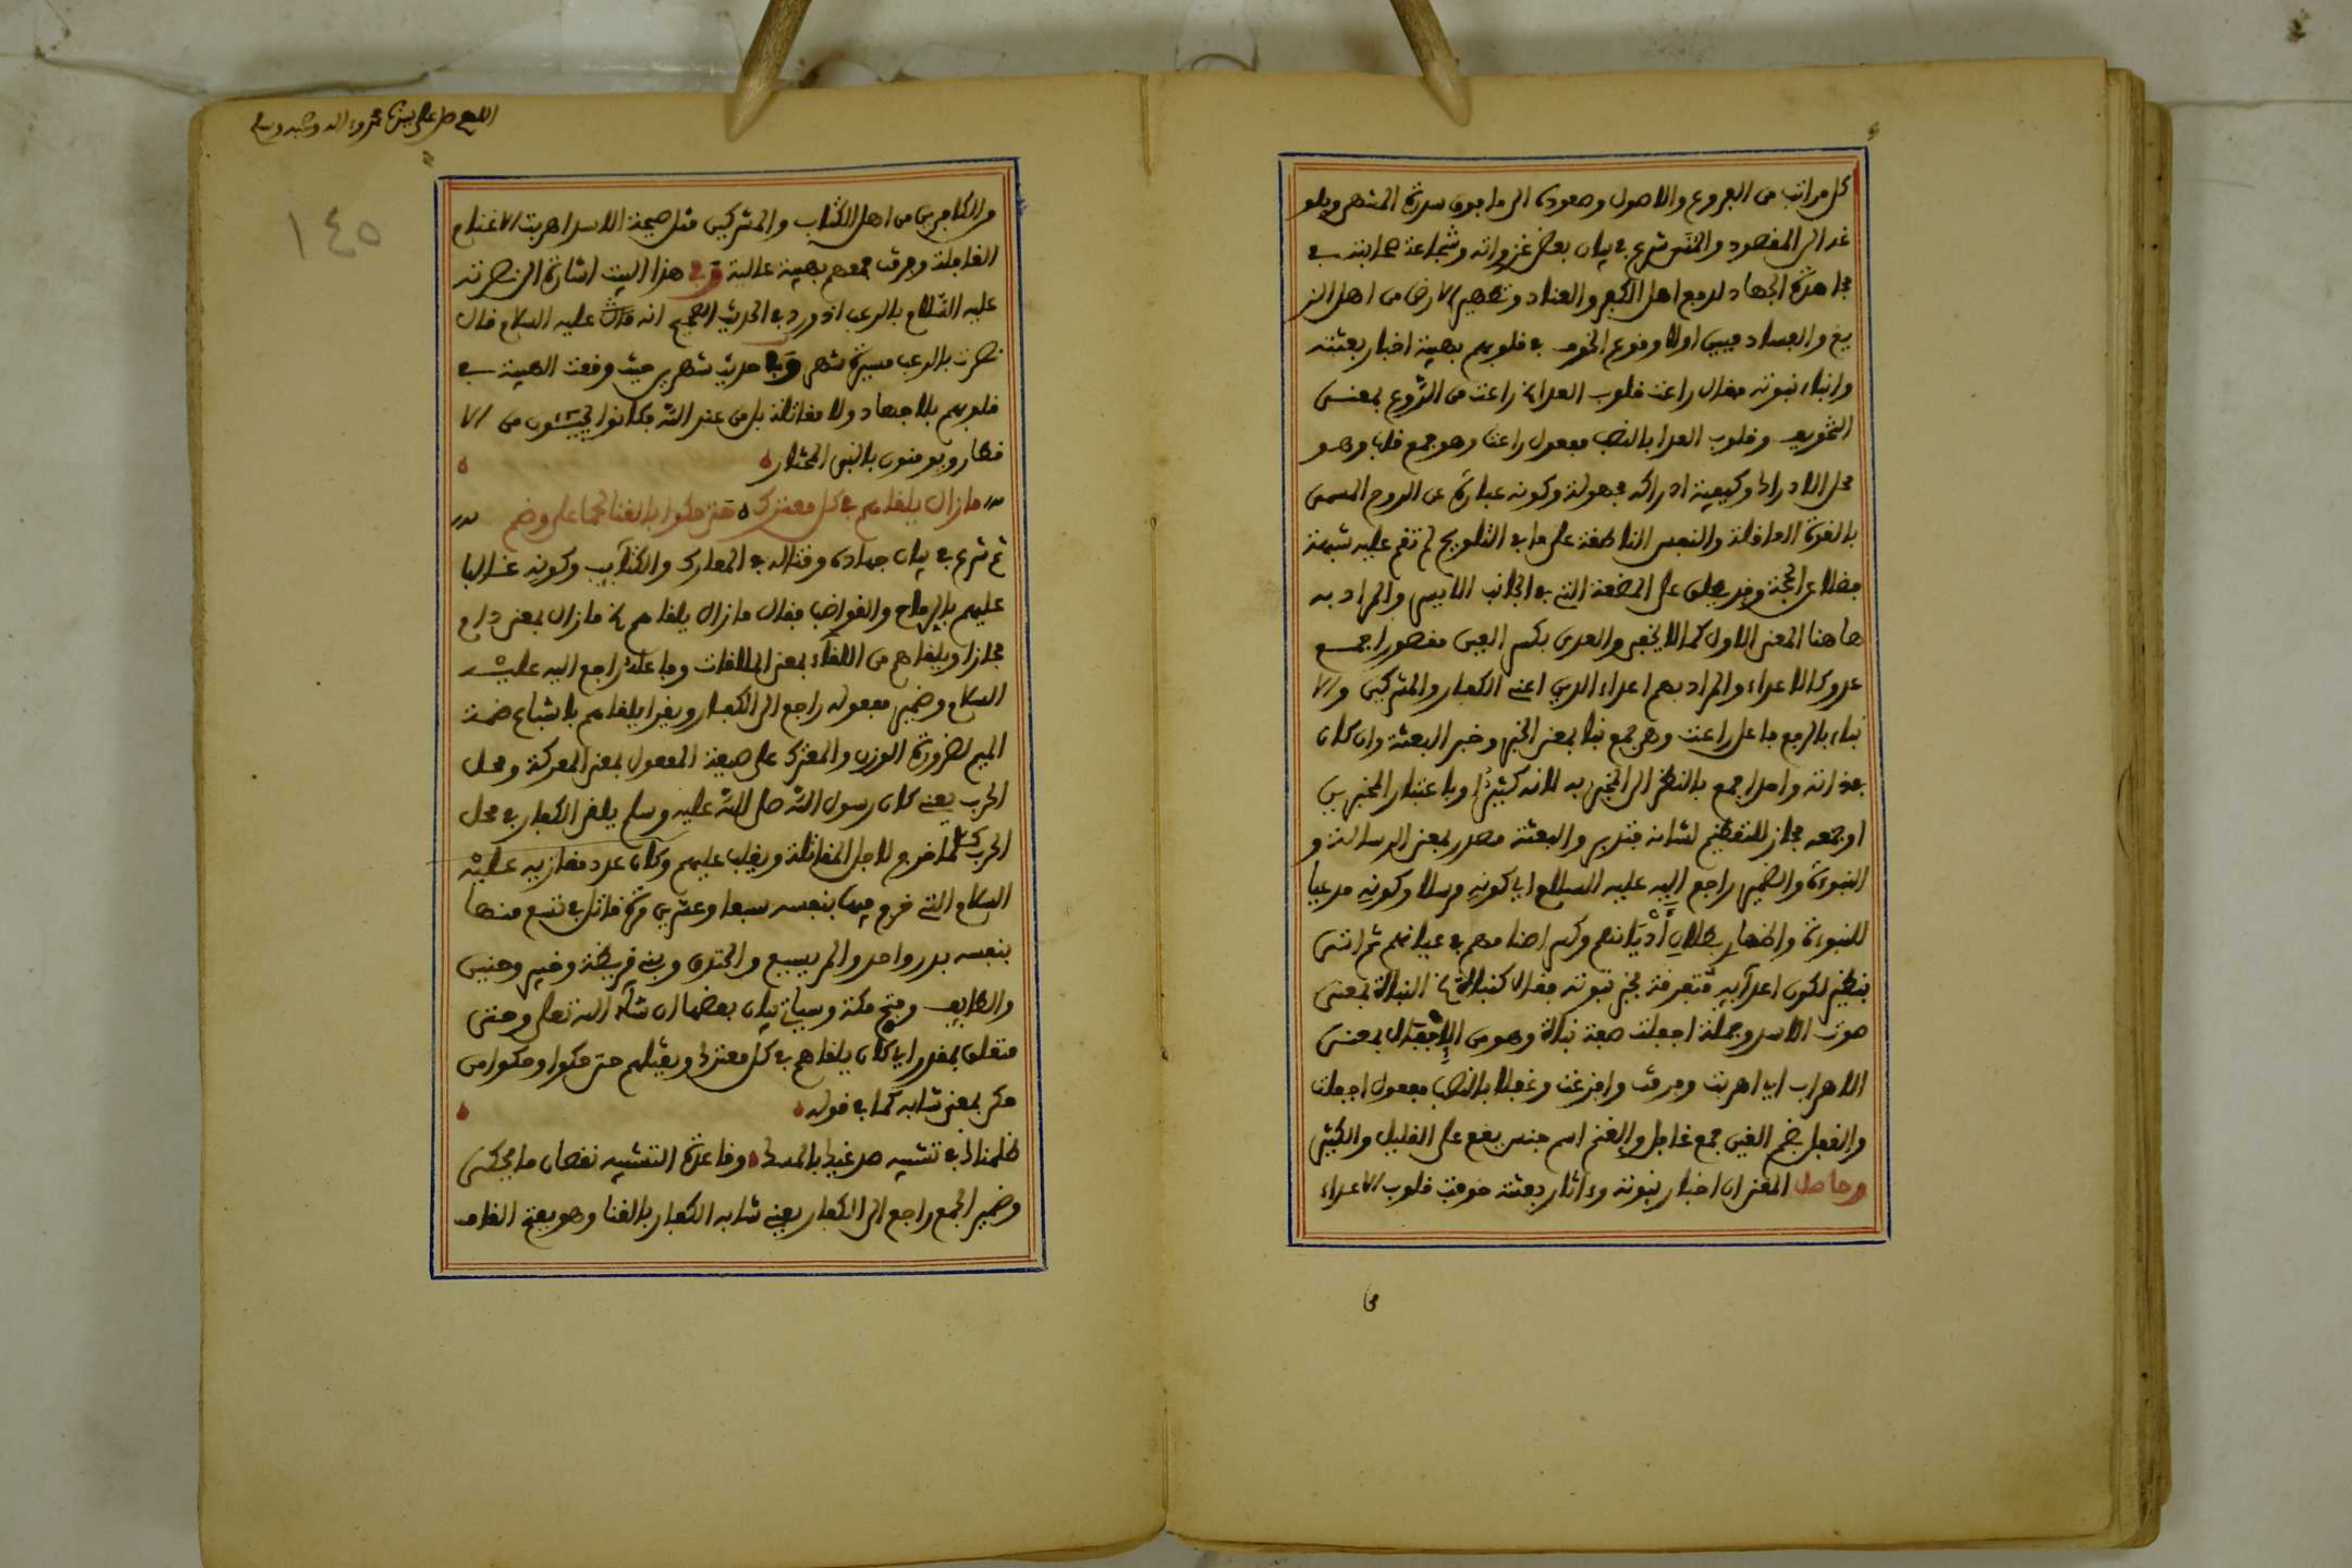 كل مراتب من الفروع والاصول وصعوده الى ما فوق سدرة المنتهى وبلو
غه الى المقصود والمنى شرع في بيان بعض غزواته وشجاعة صحابته في
مجاهدة الجهاد لدفع اهل الكفر والعناد وتطهير الارض من اهل الز
يغ والفساد فبين اولا وقوع الخوف في قلوبهم بهيبة اخبار بعثته
وانباء نبوته فقال راعت قلوب العدا الخ راعت من الروع بمعنى
التخويف وقلوب العدا بالنصب مفعول راعت وهو جمع قلب وهو
محل الادراك وكيفية ادراكه مجهولة وكونه عبارة عن الروح المسمى
بالقوة العاقلة والنفس الناطقة على ما في التلويح لم تقم عليه شبهة
فضلا عن الحجة وقد يطلق على المضغة التي في الجانب الايسر والمراد به
هاهنا المعنى الاول كما لا يخفى والعدى بكسر العين مقصورا جمع
عدو كالاعداء والمراد بهم اعداء الدين اعني الكفار والمشركين والا
نباء بالرفع فاعل راعت وهو جمع نبا بمعنى الخبر وخبر البعثة وان كان
في ذاته واحدا جمع بالنظر الى المخبر به لانه كثير او باعتبار المخبرين
او جمعه مجاز للتعظيم لشانه فتدبر والبعثة مصدر بمعنى الرسالة و
النبوءة والضمير راجع اليه عليه السلام اي كونه مرسلا وكونه مدعيا
للنبوءة واظهار بطلان أديانهم وكسر اصنامهم في عبادتهم ثم اتى
بنظير لكون اعدآيه متفرقة بخبر نبوته فقال كنبأة الخ النبأة بمعنى
صوت الاسد وجملة اجفلت صفة نبأة وهو من الإجفال بمعنى
الاهراب اي اهربت وفرقت وافزعت وغفلا بالنصب مفعول اجفلت
والغفل بضم الغين جمع غافل والغنم اسم جنس يقع على القليل والكثير
وحاصل المعنى ان اخبار نبوته وءاثار بعثته خوفت قلوب الاعداء
اللهم صل على سيدنا محمد وءاله وصحبه وسلم
١٤٥
والكافرين من اهل الكتاب والمشركين مثل صيحة الاسد اهربت الاغنام
الغافلة وفرقت جمعهم بهيبة عالية وفي هذا البيت اشارة الى نصرته
عليه السلام بالرعب اذ ورد في الحديث الصحيح انه عليه السلام قال
نصرت بالرعب مسيرة شهر وفي حديث شهرين حيث وقعت الهيبة في
قلوبهم بلا جهاد ولا مقاتلة بل من عند الله فكانوا من الا
قطار ويومنون بالنبي المختار
مازال يلقاهم في كل معترك ه حتى حكوا بالقنا لحما على وضم
ثم شرع في بيان جهاده وقتاله في المعارك والكتآيب وكونه غالبا
عليهم بالرماح والقواضب فقال مازال يلقاهم الخ مازال بمعنى دام
مجازا ويلقاهم من اللقاء بمعنى الملاقات وفاعله راجع اليه عليه
السلام وضمير مفعوله راجع الى الكفار ويقرا يلقاهم باشباع ضمة
الميم لضرورة الوزن والمعترك على صيغة المفعول بمعنى المعركة ومحل
الحرب يعني كان رسول الله صلى الله عليه وسلم يلقى الكفار في محل
الحرب كلما خرج لاجل المقاتلة ويغلب عليهم وكان عدد مغازيه عليه
السلام التي خرج فيها بنفسه سبعا وعشرين مرة قاتل في تسع منها
بنفسه بدر واحد والمريسيع والخندق وبني قريظة وخيبر وحنين
والطايف وفتح مكة وسياتي بيان بعضها ان شآء الله تعالى وحتى
متعلق بمقدر اي كان يلقاهم في كل معترك ويقتلهم حتى حكوا وحكوا من
حكى بمعنى شابه كما في قوله
ظلمناك في تشبيه صدغيك بالمسك ه وقاعدة التشبيه نقصان ما يحكى
وضمير الجمع راجع الى الكفار يعني شابه الكفار بالقنا وهو بفتح القاف